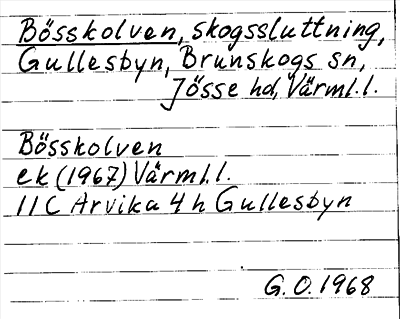 Bösskolven, skogssluttning,
Gullesbyn, Brunskogs sn,
Jösse hd, Värml.l.
Bösskolven
ek (1967) Värml.l.
11 C Arvika 4 h Gullesbyn
G.O. 1968